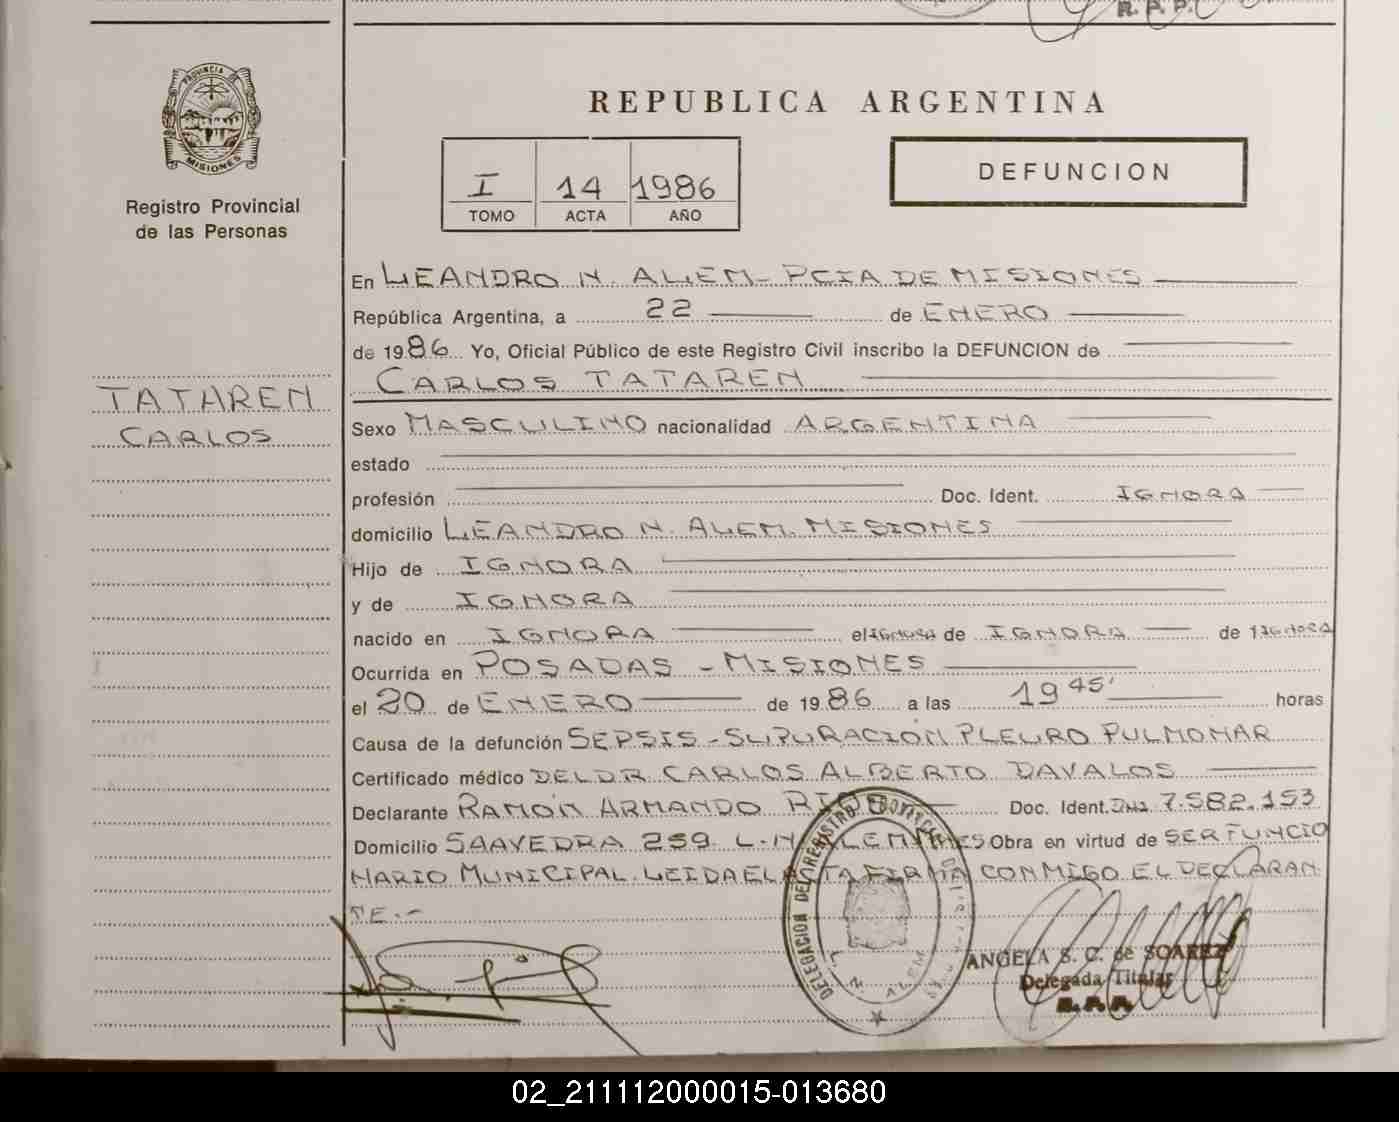 R. P. P.
PROVINCIA DE
MISIONES
Registro Provincial
de las Personas
REPUBLICA ARGENTINA
I 14 1986
TOMO ACTA AÑO
DEFUNCION
En LEANDRO N. ALEM - PCIA DE MISIONES
República Argentina, a 22 de ENERO
de 1986 Yo, Oficial Público de este Registro Civil inscribo la DEFUNCION de
CARLOS TATAREN
TATAREN
CARLOS
Sexo MASCULINO nacionalidad ARGENTINA
estado
profesión Doc. Ident. IGNORA
domicilio LEANDRO N. ALEM. MISIONES
Hijo de IGNORA
y de IGNORA
nacido en IGNORA el IGNORA de IGNORA de 1 IGNORA
Ocurrida en POSADAS - MISIONES
el 20 de ENERO de 1986 a las 19 45' horas
Causa de la defunción SEPSIS - SUPURACION PLEURO PULMONAR
Certificado médico DEL DR. CARLOS ALBERTO DAVALOS
Declarante RAMON ARMANDO Doc. Ident. DNI 7.582.153
Domicilio SAAVEDRA 259 L. N. ALEM MNES Obra en virtud de SER FUNCIO
NARIO MUNICIPAL. LEIDA EL ACTA FIRMA CONMIGO EL DECLARAN
TE.-
DELEGACION DEL REGISTRO
L. N. ALEM
ANGELA S. C. de SOAREZ
Delegada Titular
R. P. P.
02_211112000015-013680